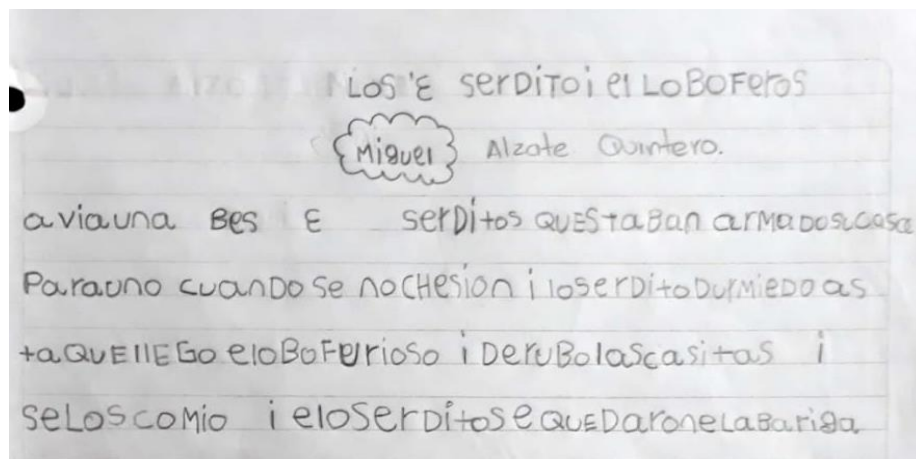 LOS 'Ɛ serDiToi el LoBoFeros
Miguel Alzate Quintero.
aviauna Bes Ɛ serDitos QUEStaBan arMaDosucasa
Paraono cuanDo se noCHesion i loserDitoDurMieDo as
taQUEllEGo eloBoFurioso i DeruBolascasitas i
seLoscoMio i eloSerDitose QUEDaroneLaBariga